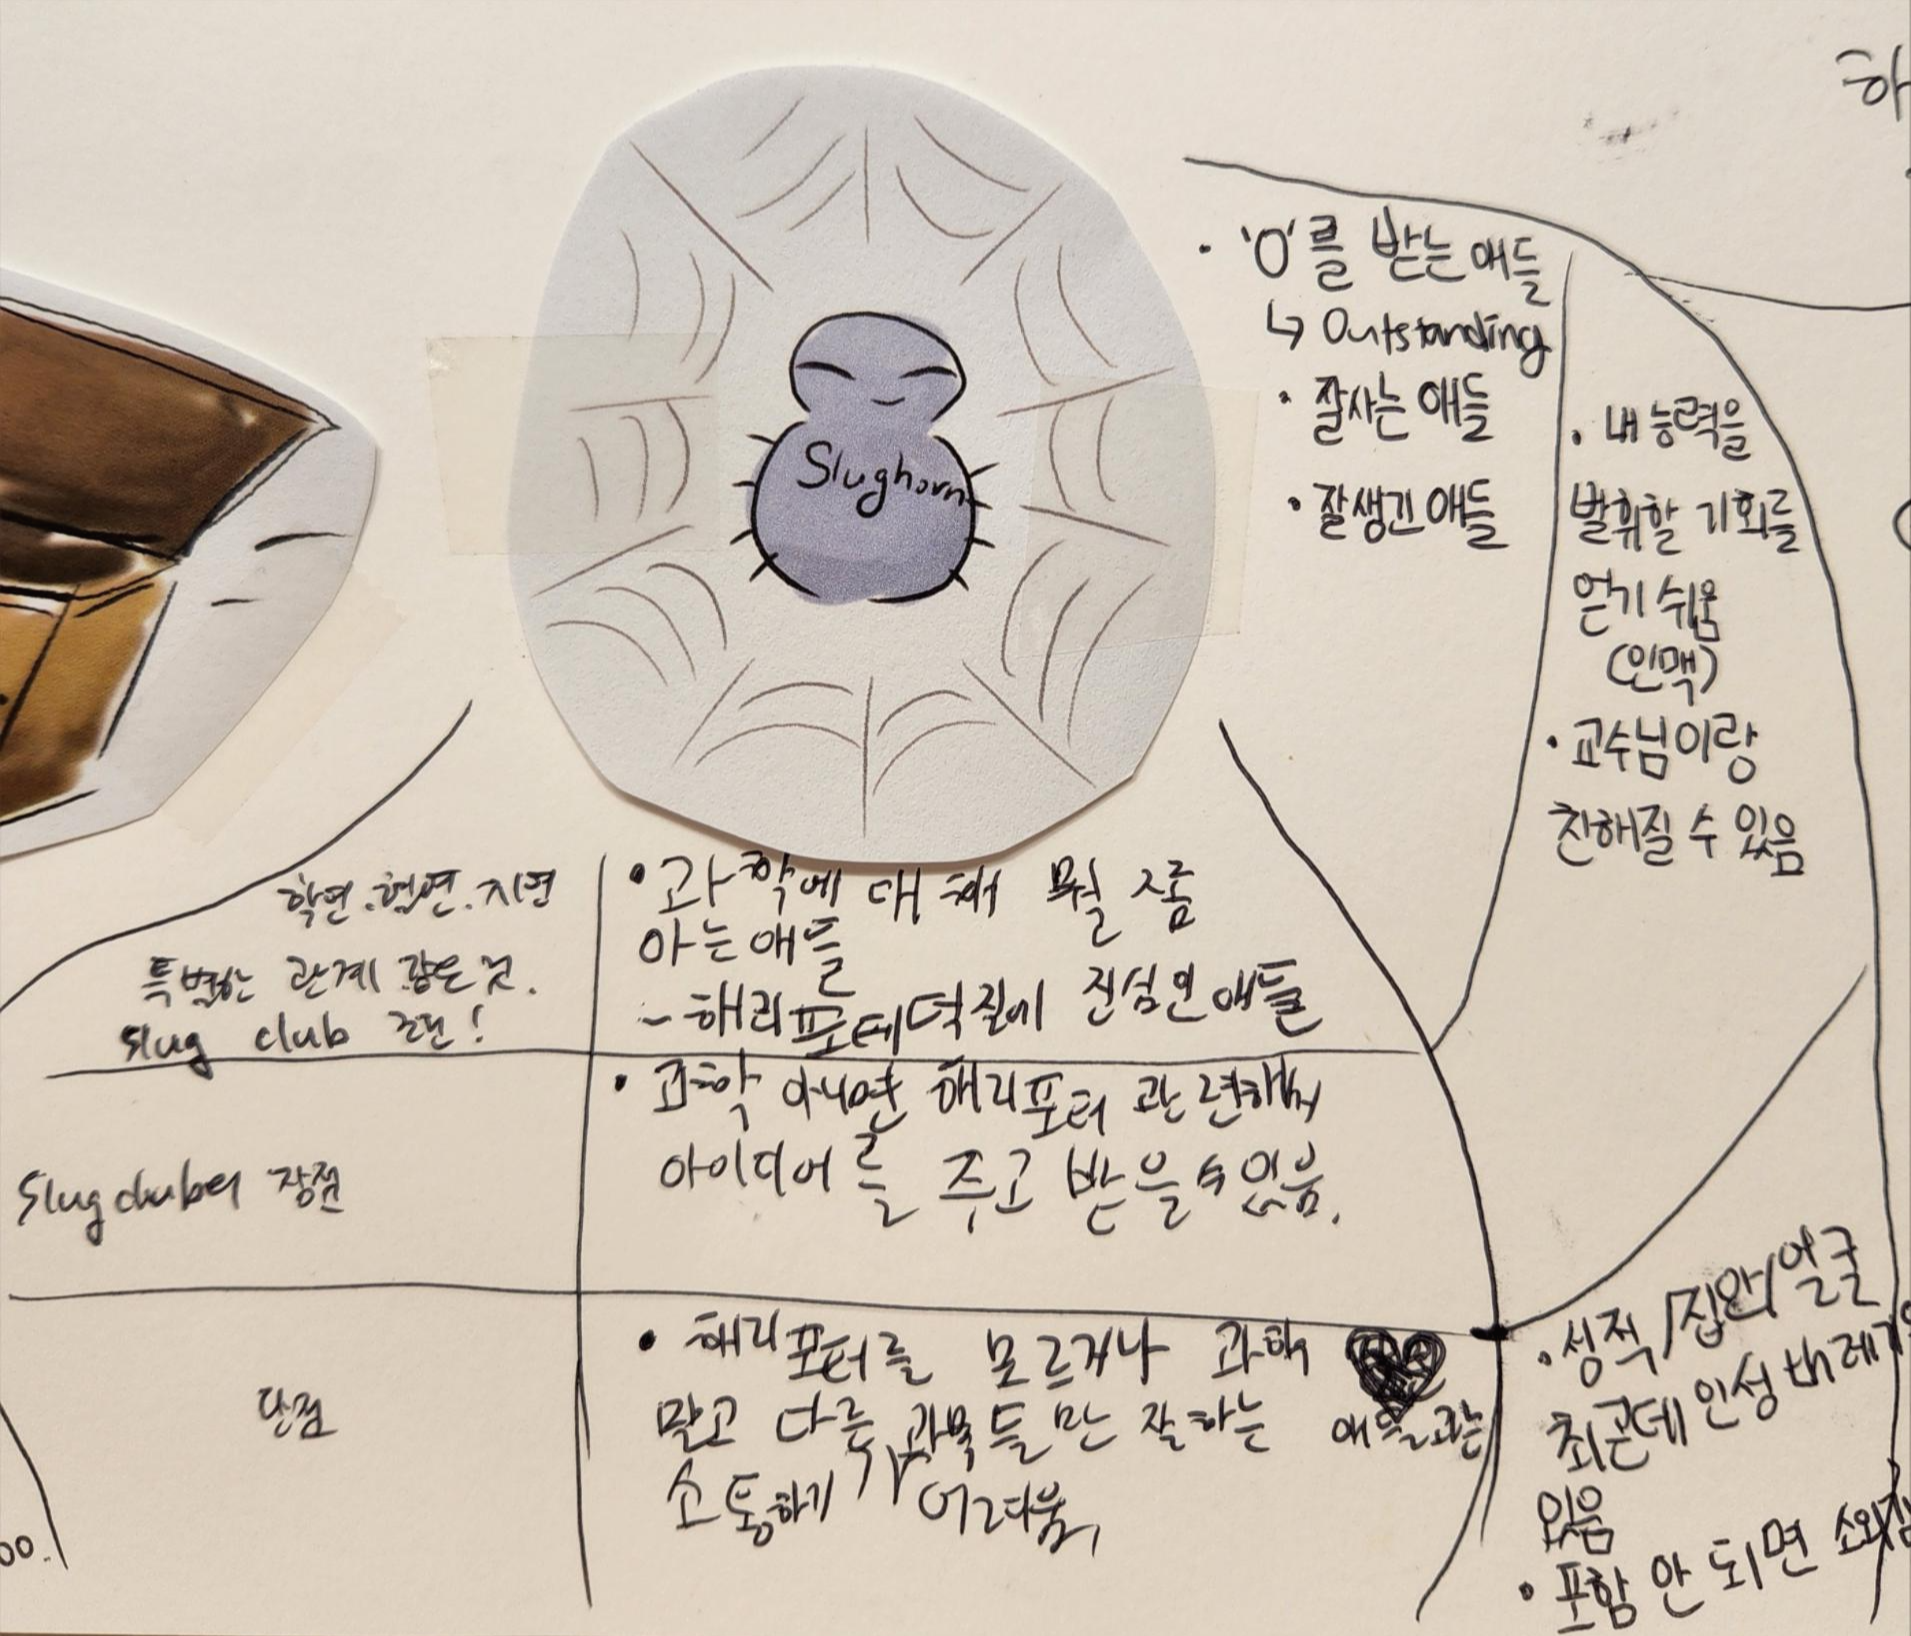 하
Slughorn
· 'O'를 받는 애들
↳ Outstanding
· 잘사는 애들
· 잘생긴 애들
· 내 능력을
발휘할 기회를
얻기 쉬움
(인맥)
· 교수님이랑
친해질 수 있음
학연.혈연.지연
특별한 관계 같은 것.
Slug club 조건!
· 과학에 대해 뭘 좀
아는 애들
- 해리포터 덕질에 진심인 애들
장점
· 과학 아니면 해리포터 관련해서
아이디어를 주고 받을 수 있음.
단점
· 해리포터를 모르거나 과학
말고 다른 과목들만 잘하는 애들과는
소통하기가 어려움.
· 성적/집안/얼굴
최곤데 인성 버레기
있음
· 포함 안 되면